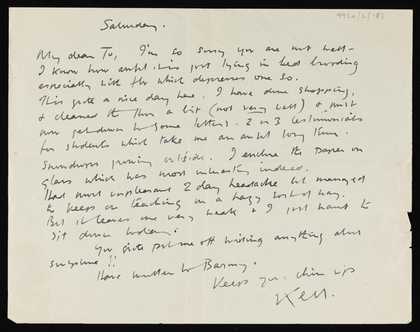 Saturday.
My dear To, I'm so sorry you are not well -
I know how awful it is just lying in bed brooding
especially with flu which depresses one so.
This quite a nice day here. I have done shopping,
& cleaned the floor a bit (not very well) & must
now get down to some letters - 2 or 3 testimonials
for students which take me an awful long time.
Snowdrops growing outside. I enclose the paper on
glass which was most interesting indeed.
Had most unpleasant 2 day headache but managed
to keep on teaching in a hazy sort of way.
But it leaves one very weak & I just want to
sit down today.
You quite put me off writing anything about
surprise!!
Have written to Barmy.
Keep your chin up